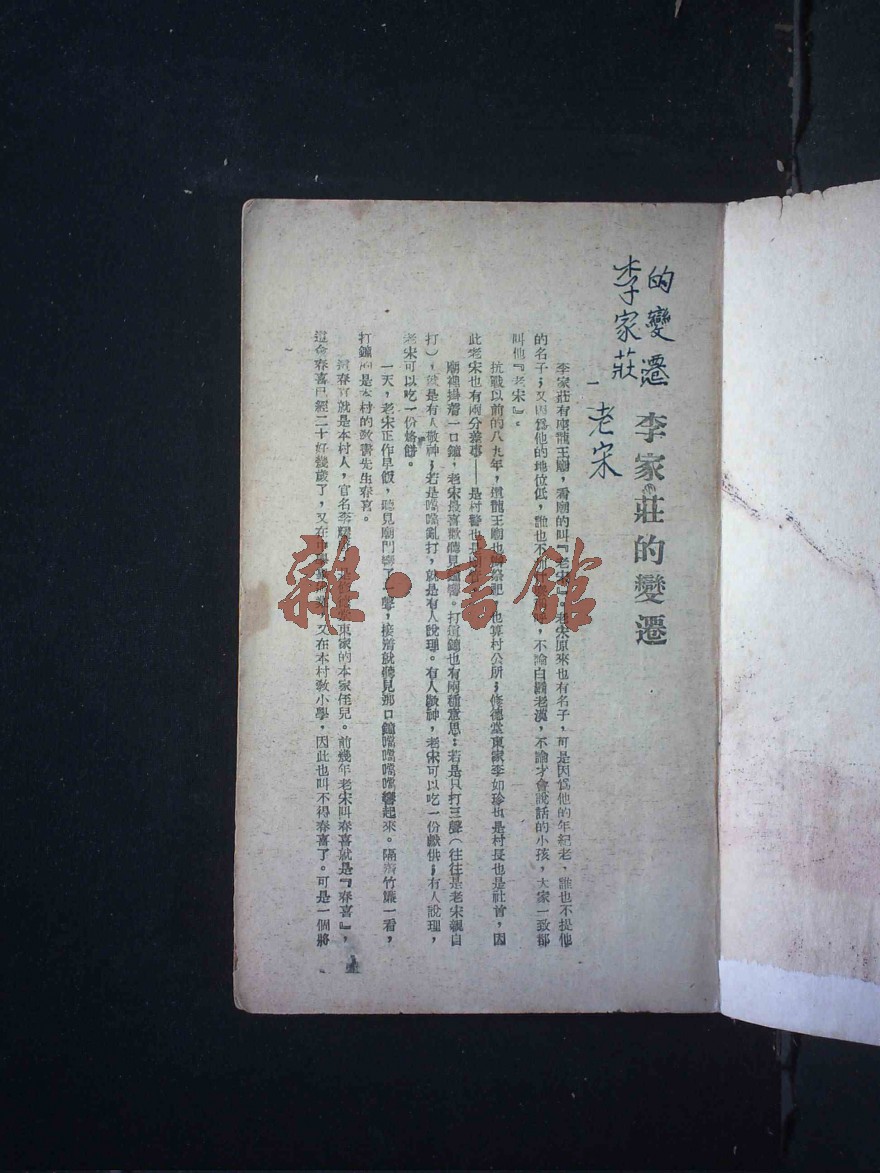 的變遷
李家莊
李家莊的變遷
一
老宋
李家莊有座龍王廟，看廟的叫『老宋』。老宋原來也有名子，可是因爲他的年紀老，誰也不提他
的名子；又因爲他的地位低，誰也不，不論白鬍老漢，不論才會說話的小孩，大家一致都
叫他『老宋』。
抗戰以前的八九年，這龍王廟也，也算村公所；修德堂東家李如珍也是村長也是社首，因
此老宋也有兩分差事——是村警也是
廟裡掛着一口鐘，老宋最喜歡聽見鐘響。打這鐘也有兩種意思：若是只打三聲（往往是老宋親自
打），就是有人敬神；若是噹噹亂打，就是有人說理。有人敬神，老宋可以吃一份獻供；有人說理，
老宋可以吃一份烙餅。
一天，老宋正作早飯，聽見廟門響了一聲，接着就聽見那口鐘噹噹噹噹響起來。隔着竹簾一看，
打鐘的是本村的教書先生春喜。
這春喜就是本村人，官名李耀東家的本家侄兒。前幾年老宋叫春喜就是『春喜』，
這會春喜已經二十好幾歲了，又在中學，又在本村教小學，因此也叫不得春喜了。可是一個將
雜·書館